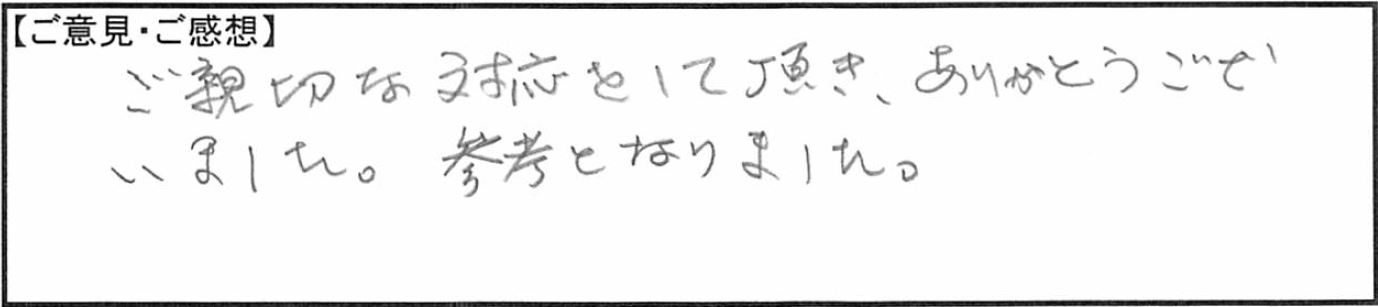 【ご意見・ご感想】
ご親切な対応をして頂き、ありがとうござ
いました。参考となりました。